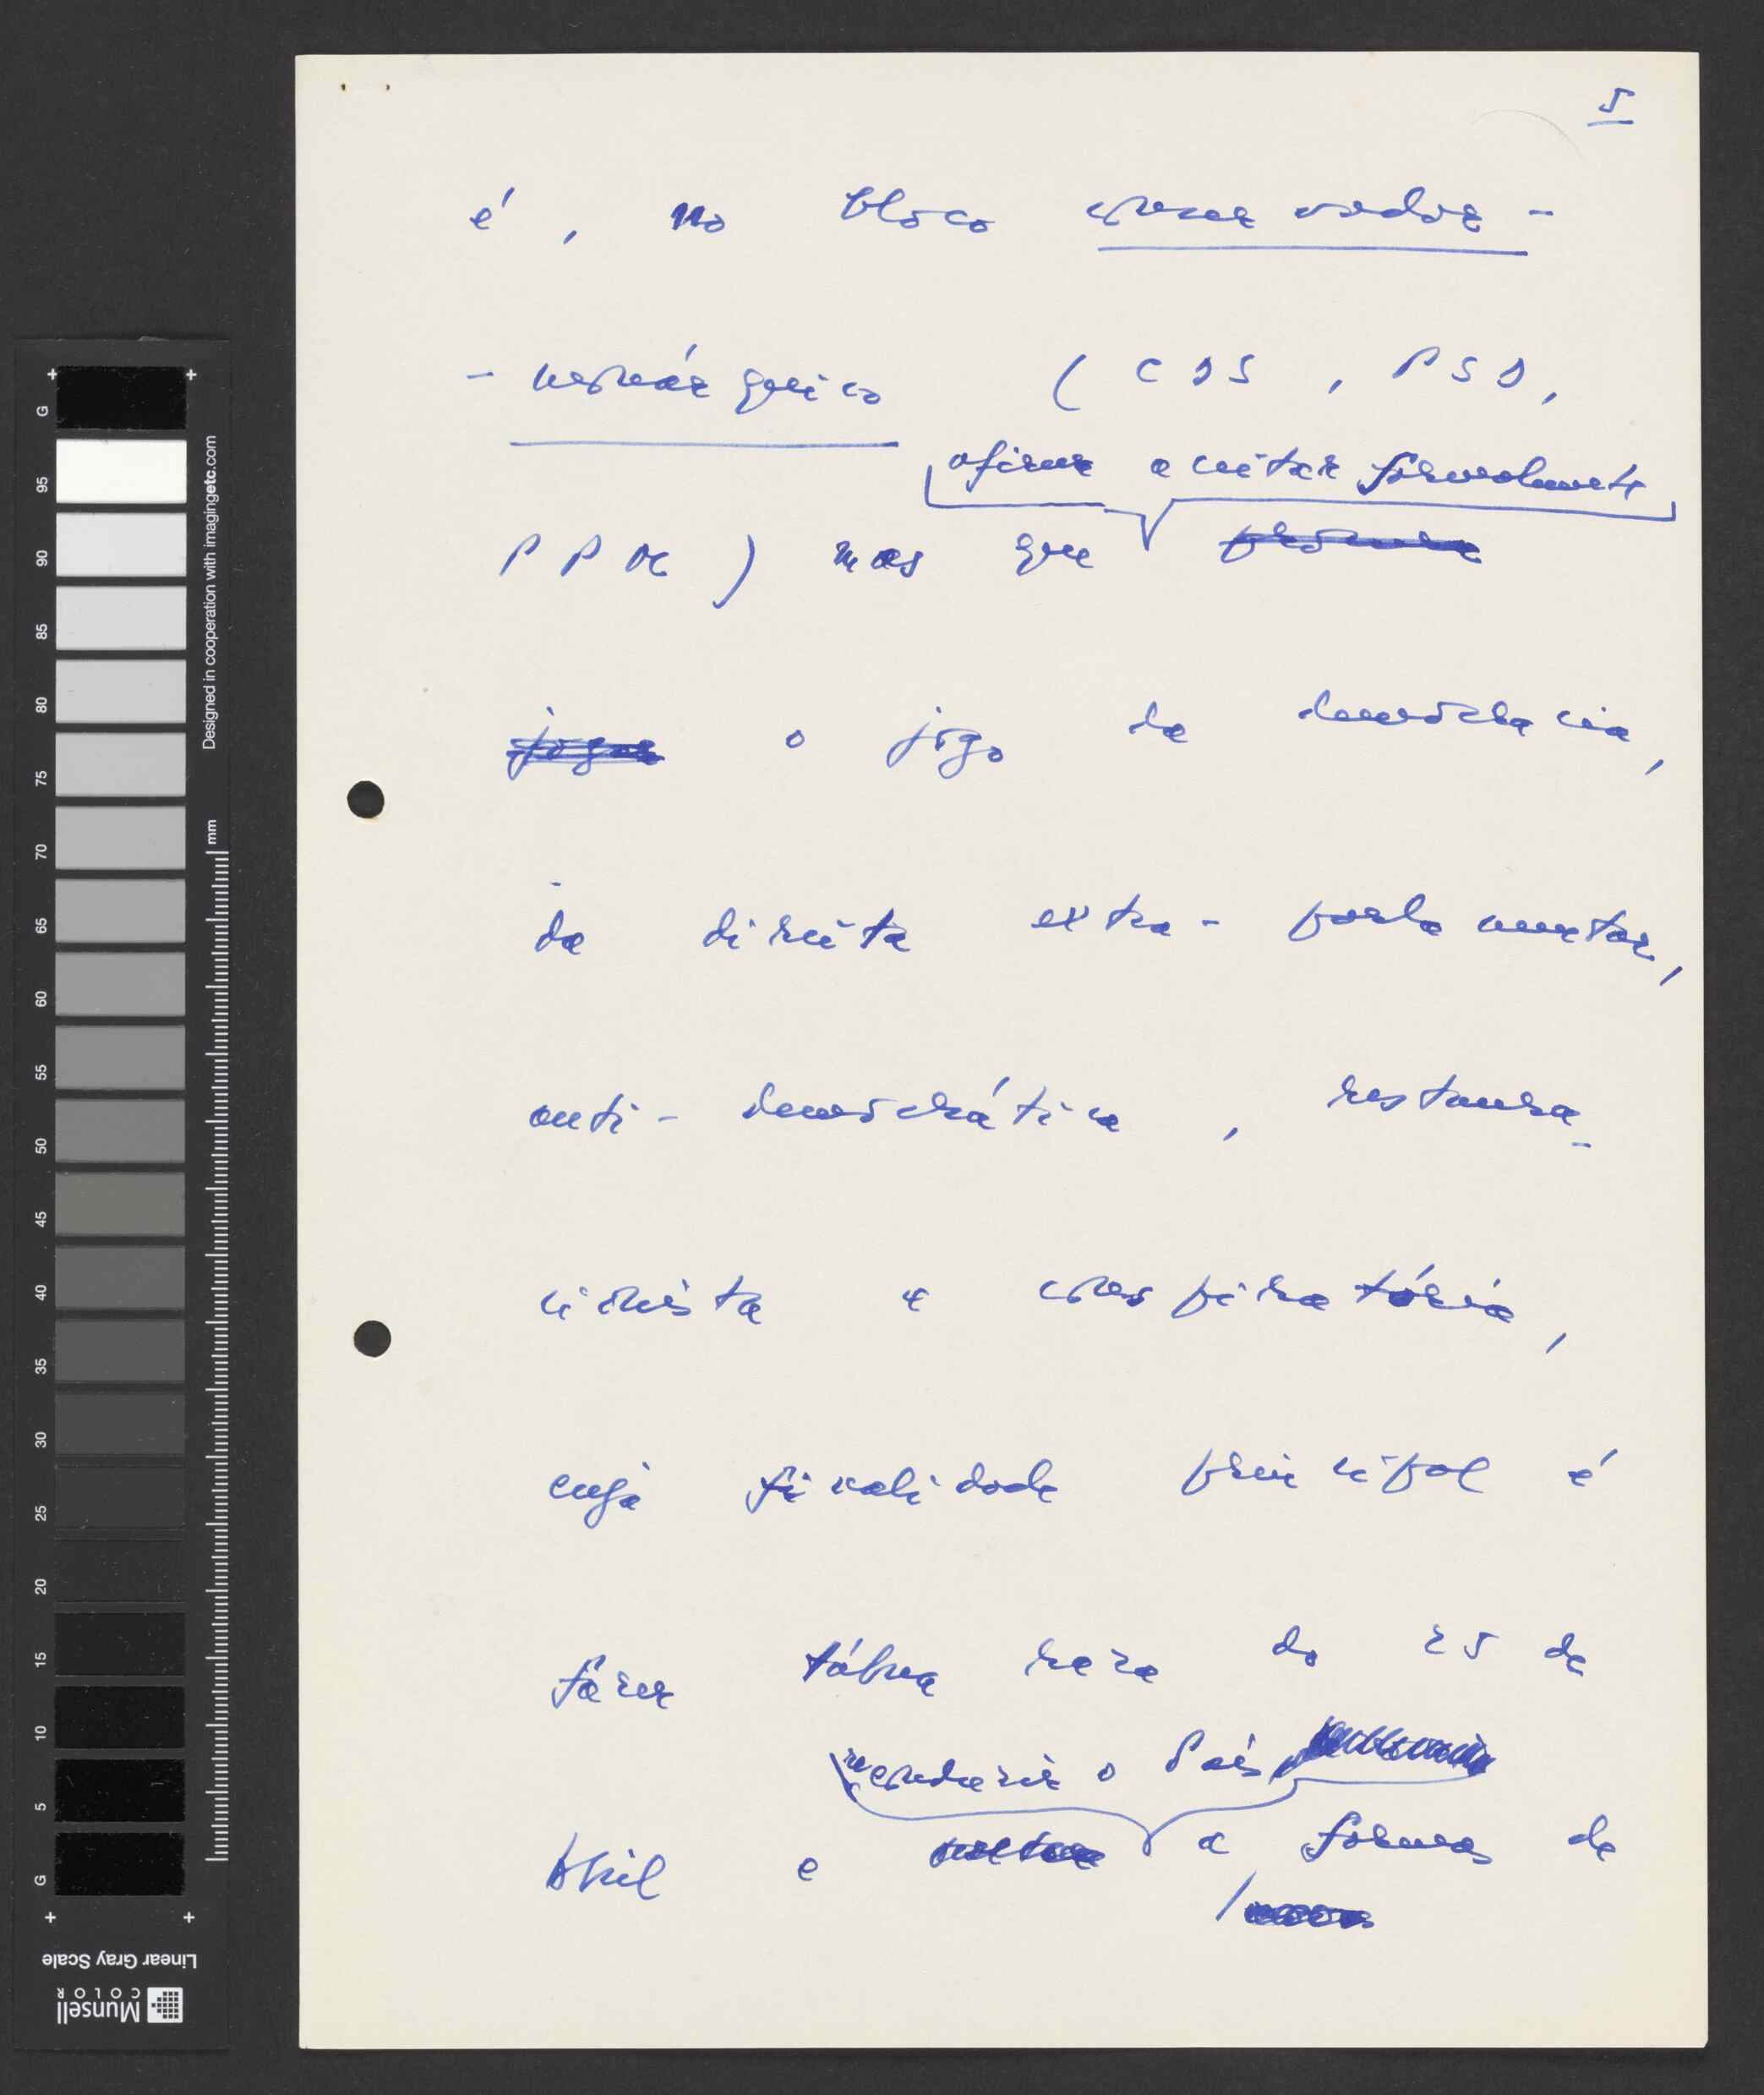 5
é, no bloco conservador-
-monárquico (CDS, PSD,
afirma aceitar formalmente
PPM) mas que
jogar o jogo da democracia,
da direita extra-parlamentar,
anti-democrática, restaura-
cionista e conspiratória,
cuja finalidade principal é
fazer tábua rasa do 25 de
reconduzir o País
Abril e voltar a formas de
G
95
90
85
80
75
70
65
60
55
50
45
40
35
30
25
20
15
10
5
G
Designed in cooperation with imagingetc.com
mm
Linear Gray Scale
Munsell
COLOR